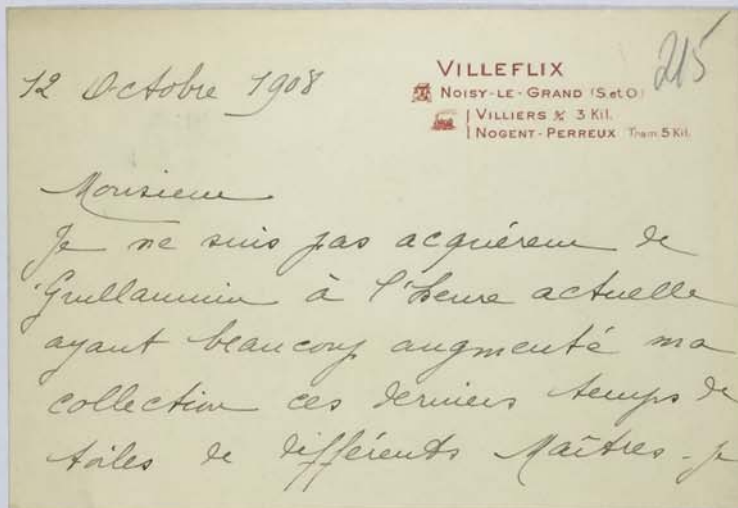 215
VILLEFLIX
NOISY-LE-GRAND (S.et.O)
VILLIERS s/ 3 Kil.
NOGENT-PERREUX Tram 5 Kil.
12 Octobre 1908
Monsieur
Je ne suis pas acquéreur de
Guillaumin à l'heure actuelle
ayant beaucoup augmenté ma
collection ces derniers temps de
toiles de différents Maîtres - je